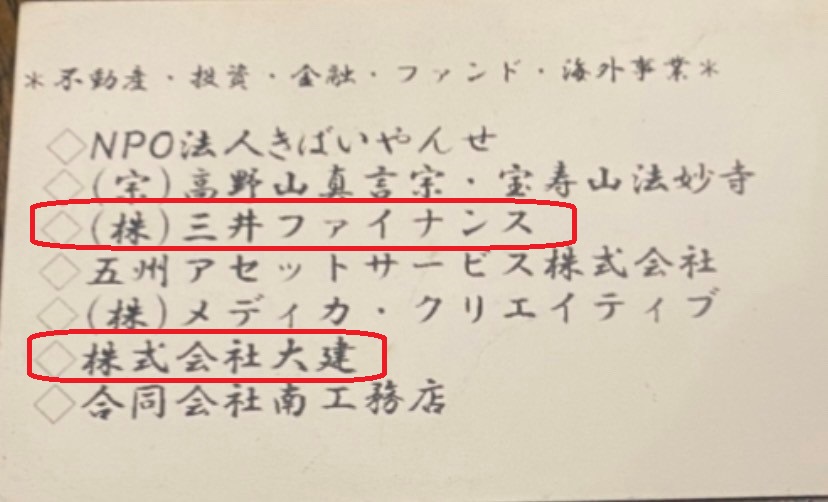 *不動産・投資・金融・ファンド・海外事業*
◇NPO法人きばいやんせ
◇(宗)高野山真言宗・宝寿山法妙寺
◇(株)三井ファイナンス
◇五州アセットサービス株式会社
◇(株)メディカ・クリエイティブ
◇株式会社大建
◇合同会社南工務店